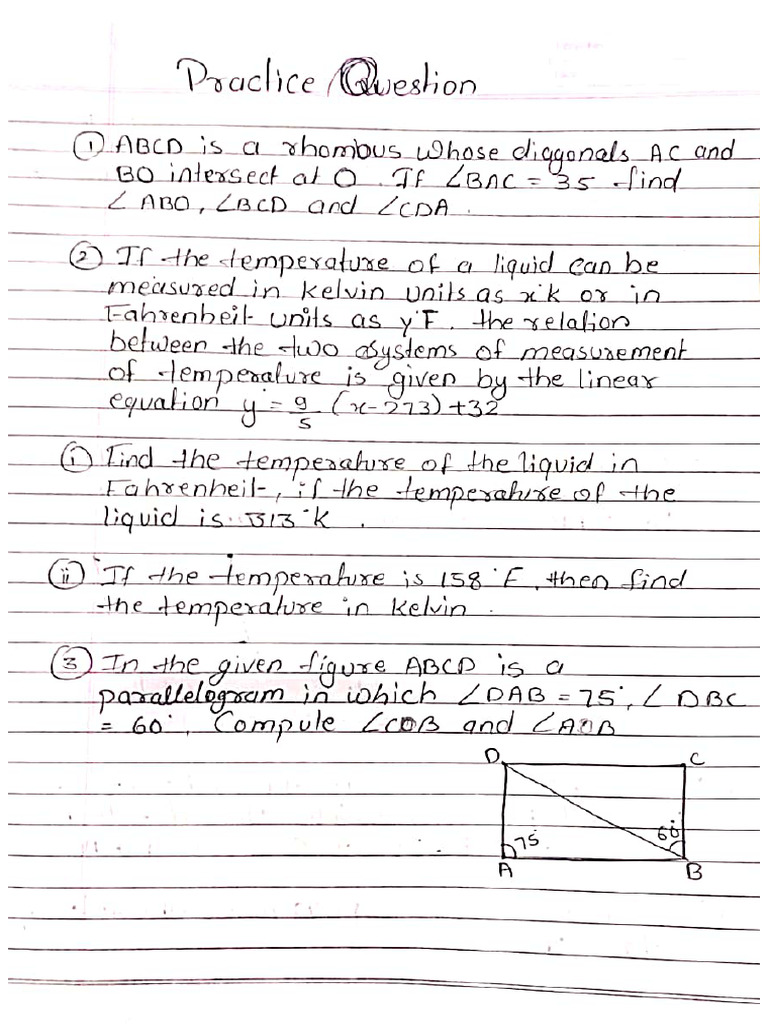 Practice Question
① ABCD is a rhombus whose diagonals AC and
BO intersect at O. If ∠BAC = 35 find
∠ABO, ∠BCD and ∠CDA.
② If the temperature of a liquid can be
measured in kelvin units as x°k or in
Fahrenheit units as y°F. the relation
between the two systems of measurement
of temperature is given by the linear
equation y = 9/5 (x-273)+32
① Find the temperature of the liquid in
Fahrenheit, if the temperature of the
liquid is 313°K.
ⅱ If the temperature is 158°F, then find
the temperature in kelvin.
③ In the given figure ABCD is a
parallelogram in which ∠DAB = 75°, ∠DBC
= 60°. Compule ∠CDB and ∠ADB
D C
75 60°
A B